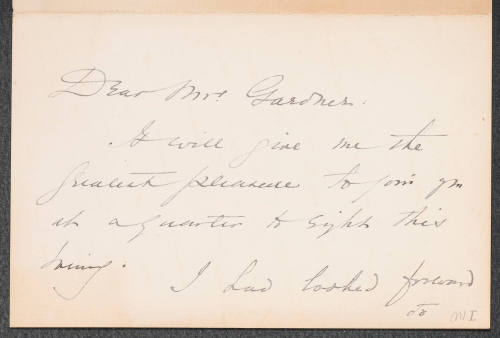 Dear Mrs. Gardner.
It will give me the
greatest pleasure to join you
at a quarter to eight this
I had looked forward
to